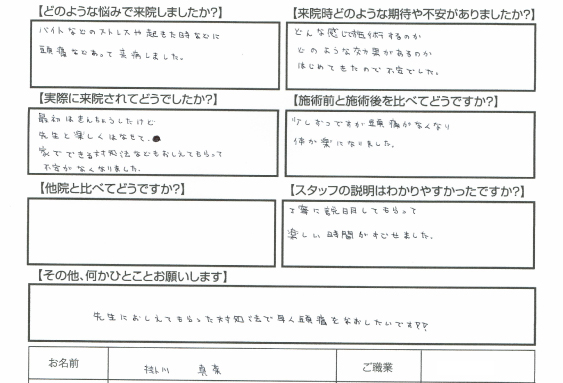 【どのような悩みで来院しましたか?】
バイトなどのストレスや起きた時などに
頭痛などあって来院しました。
【来院時どのような期待や不安がありましたか?】
どんな感じで施術するのか
どのような効果があるのか
はじめてきたので不安でした。
【実際に来院されてどうでしたか?】
最初はきんちょうしたけど
先生と楽しくはなせて、
家でできる対処法などもおしえてもらって
不安がなくなりました。
【施術前と施術後を比べてどうですか?】
少しずつですが頭痛がなくなり
体が楽になりました。
【他院と比べてどうですか?】
【スタッフの説明はわかりやすかったですか?】
丁寧に説明してもらって
楽しい時間がすごせました。
【その他、何かひとことお願いします】
先生におしえてもらった対処法で早く頭痛をなおしたいです!?
お名前
掛川 真菜
ご職業